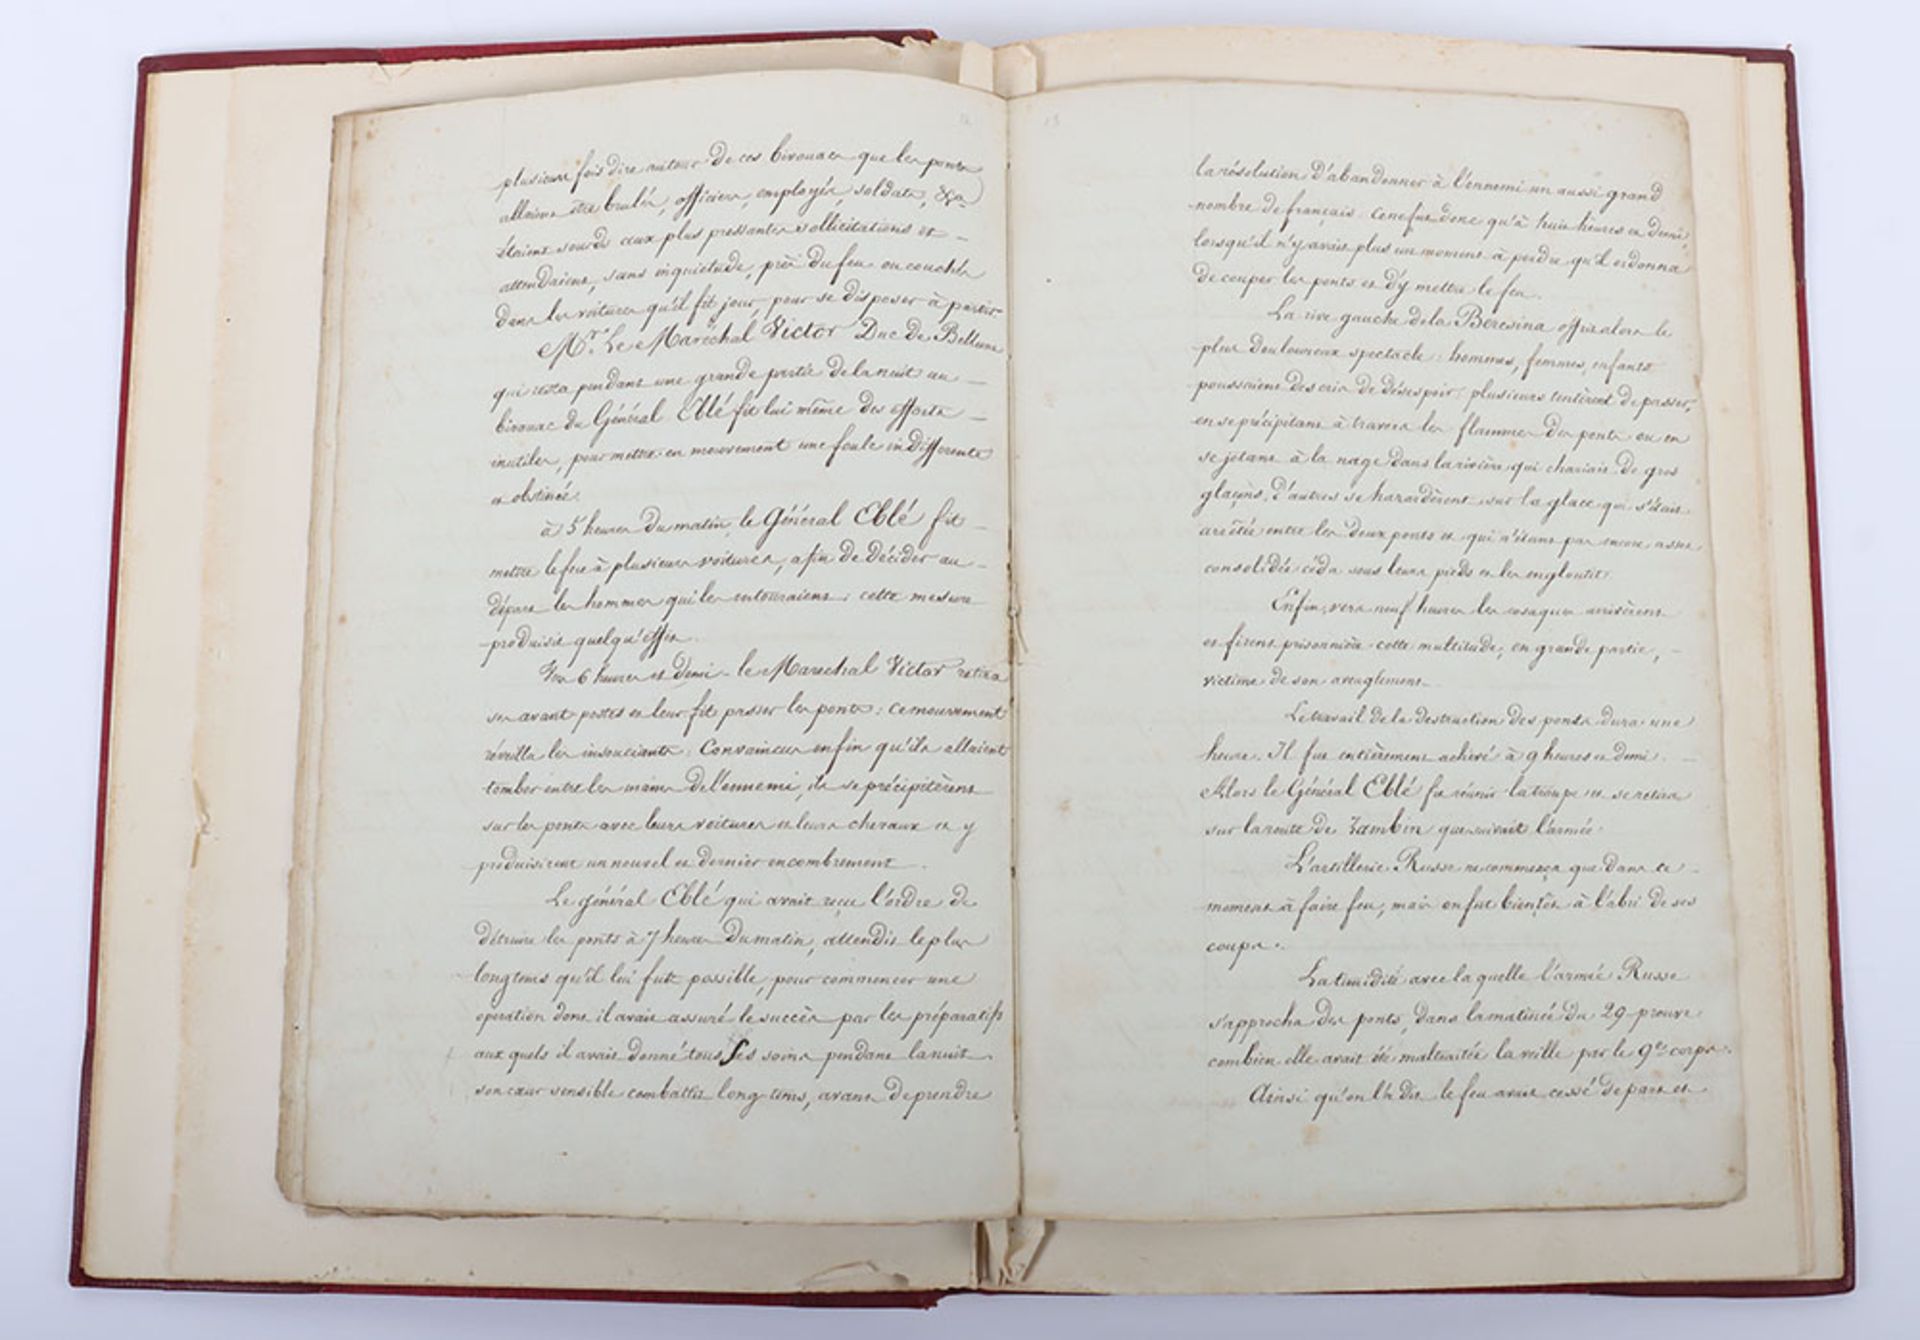 12
plusieurs fois dire autour de ces bivouacs que les ponts
allaient être brulés, officiers, employés, soldats, &ca
étaient sourds aux plus pressantes sollicitations et
attendaient, sans inquiétude, près du feu ou couchés
dans les voitures qu'il fit jour, pour se disposer à partir.
Mr. Le Maréchal Victor Duc de Bellune
qui resta pendant une grande partie de la nuit au
bivouac du Général Eblé fit lui même des efforts
inutiles, pour mettre en mouvement une foule indifférente
et obstinée.
à 5 heures du matin, le Général Eblé fit
mettre le feu à plusieurs voitures, afin de décider au
départ les hommes qui les entouraient; cette mesure
produisit quelqu'effet.
Vers 6 heures et demi le Marechal Victor retira
ses avant postes et leur fit passer les ponts: ce mouvement
réveilla les insouciants. Convaincus enfin qu'ils allaient
tomber entre les mains de l'ennemi, ils se précipitèrent
sur les ponts avec leurs voitures et leurs chevaux et y
produisirent un nouvel et dernier encombrement.
Le général Eblé qui avait reçu l'ordre de
détruire les ponts à 7 heures du matin, attendit le plus
longtems qu'il lui fut possible, pour commencer une
opération dont il avait assuré le succès par les préparatifs
aux quels il avait donné tous ses soins pendant la nuit.
son cœur sensible combattit long-tems, avant de prendre
13
la résolution d'abandonner à l'ennemi un aussi grand
nombre de français. Ce ne fut donc qu'à huit heures et demi,
lorsqu'il n'y avait plus un moment à perdre qu'il ordonna
de couper les ponts et d'y mettre le feu.
La rive gauche de la Beresina offrit alors le
plus douloureux spectacle: hommes, femmes, enfants
poussaient des cris de désespoir; plusieurs tentèrent de passer,
en se précipitant à travers les flammes des ponts ou en
se jetant à la nage dans la rivière qui chariait de gros
glaçons, d'autres se hazardèrent sur la glace qui s'était
arrêtée entre les deux ponts et qui n'étant pas encore assez
consolidée céda sous leurs pieds et les engloutit.
Enfin, vers neuf heures les cosaques arrivèrent
et firent prisonnière cette multitude, en grande partie,
victime de son aveuglement.
Le travail de la destruction des ponts dura une
heure. Il fut entièrement achevé à 9 heures et demi.
Alors le Général Eblé fit réunir la troupe et se retira
sur la route de Zambin que suivait l'armée.
L'artillerie Russe ne commença que dans ce
moment à faire feu, mais on fut bientôt à l'abri de ses
coups.
La timidité avec la quelle l'armée Russe
s'approcha des ponts, dans la matinée du 29 prouve
combien elle avait été maltraitée la veille par le 9e corps.
Ainsi qu'on l'a dit le feu avait cessé de part et